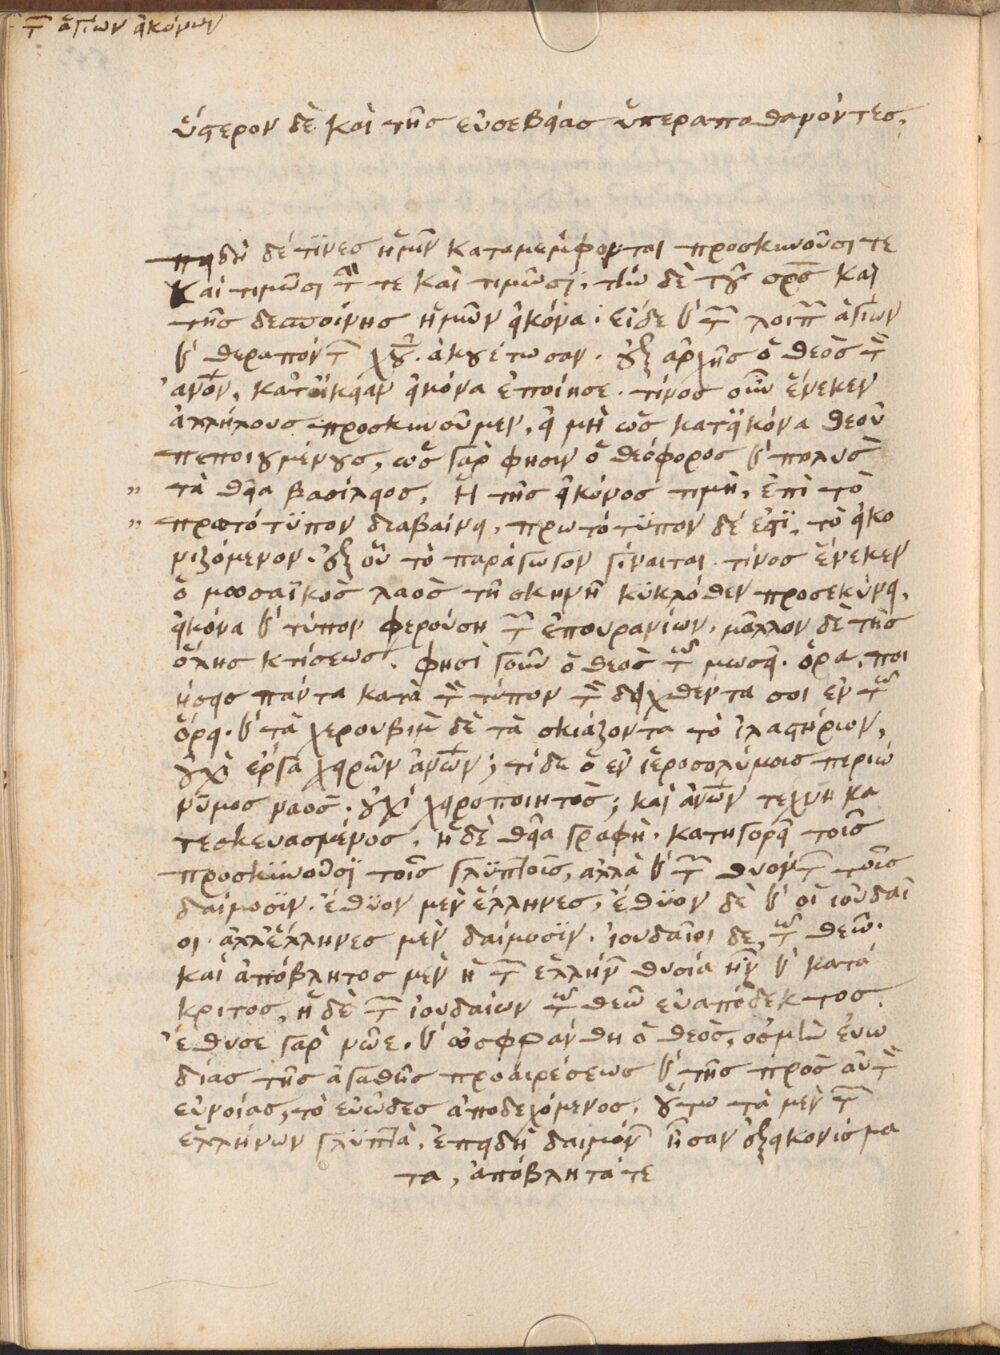 τ̅ ἁγίων εἰκόνων
ὕστερον δὲ καὶ τῆς εὐσεβείας ὑπεραποθανόντες.
πειδὴ δέ τινες ἡμῖν καταμέμφονται προσκυνοῦσί τε
καὶ τιμῶσι τ̅ τε καὶ τιμῶσι, τὴν δὲ τοῦ σρ̅ς καὶ
τῆς δεσποίνης ἡμῶν εἰκόνα. εἰ δὲ καὶ τ̅ λοιπ̅ ἁγίων
καὶ θεραπόντ̅ χυ̅. ἀκουέτωσαν. ὡς ἐξ ἀρχῆς ὁ θεὸς τ̅
ἄνον̅, κατ' οἰκείαν εἰκόνα ἐποίησε. τίνος οὖν ἕνεκεν
ἀλλήλους προσκυνοῦμεν, εἰ μὴ ὡς κατ' εἰκόνα θεοῦ
πεποιημένους, ὡς γάρ φησιν ὁ θεόφορος καὶ πολὺς
" τὰ θεῖα βασίλειος, ἡ τῆς εἰκόνος τιμὴ, ἐπὶ τὸ
" πρωτότυπον διαβαίνει, πρωτότυπον δέ ἐστι, τὸ εἰκο
νιζόμενον. ἐξ οὗ τὸ παράγωγον γίνεται. τίνος ἕνεκεν
ὁ μωσαϊκὸς λαὸς τῇ σκηνῇ κυκλόθεν προσεκύνει,
εἰκόνα καὶ τύπον φερούσῃ τ̅ ἐπουρανίων, μᾶλλον δὲ τῆς
ὅλης κτίσεως. φησὶ γοῦν ὁ θεὸς τῷ μωσεῖ. ὅρα, ποι
ήσεις πάντα κατὰ τ̅ τύπον τ̅ δειχθέντα σοι ἐν τῷ
ὄρει. καὶ τὰ χερουβὶμ δὲ τὰ σκιάζοντα τὸ ἱλαστήριον,
οὐχὶ ἔργα χειρῶν ἀνω̅ν; τί δὲ ὁ ἐν ἱεροσολύμοις περιώ
νυμος ναός. οὐχὶ χειροποίητος; καὶ ἀνω̅ν τέχνῃ κα
τεσκευασμένος. ἡ δὲ θεία γραφὴ. κατηγορεῖ τοῖς
προσκυνοῦσι τοῖς γλυπτοῖς, ἀλλὰ καὶ τ̅ θυόντ̅ τοῖς
δαίμοσιν. ἔθυον μὲν ἕλληνες, ἔθυον δὲ καὶ οἱ ἰουδαῖ
οι. ἀλλ' ἕλληνες μὲν δαίμοσιν. ἰουδαῖοι δὲ, τῷ θεῷ.
καὶ ἀπόβλητος μὲν ἡ τ̅ ἑλλήν̅ θυσία ἦν καὶ κατά
κριτος, ἡ δὲ τ̅ ἰουδαίων τῷ θεῷ εὐαπόδεκτος.
ἔθυσε γὰρ νῶε. καὶ ὠσφράνθη ὁ θεὸς, ὀσμὴν εὐω
δίας τῆς ἀγαθῆς προαιρέσεως καὶ τῆς πρὸς αὐτ̅
εὐνοίας, τὸ εὐῶδες ἀποδεχόμενος. οὕτω τὰ μὲν τ̅
ἑλλήνων γλυπτὰ, ἐπειδὴ δαιμόν̅ ἦσαν ἐξεικονίσμα
τα, ἀπόβλητά τε